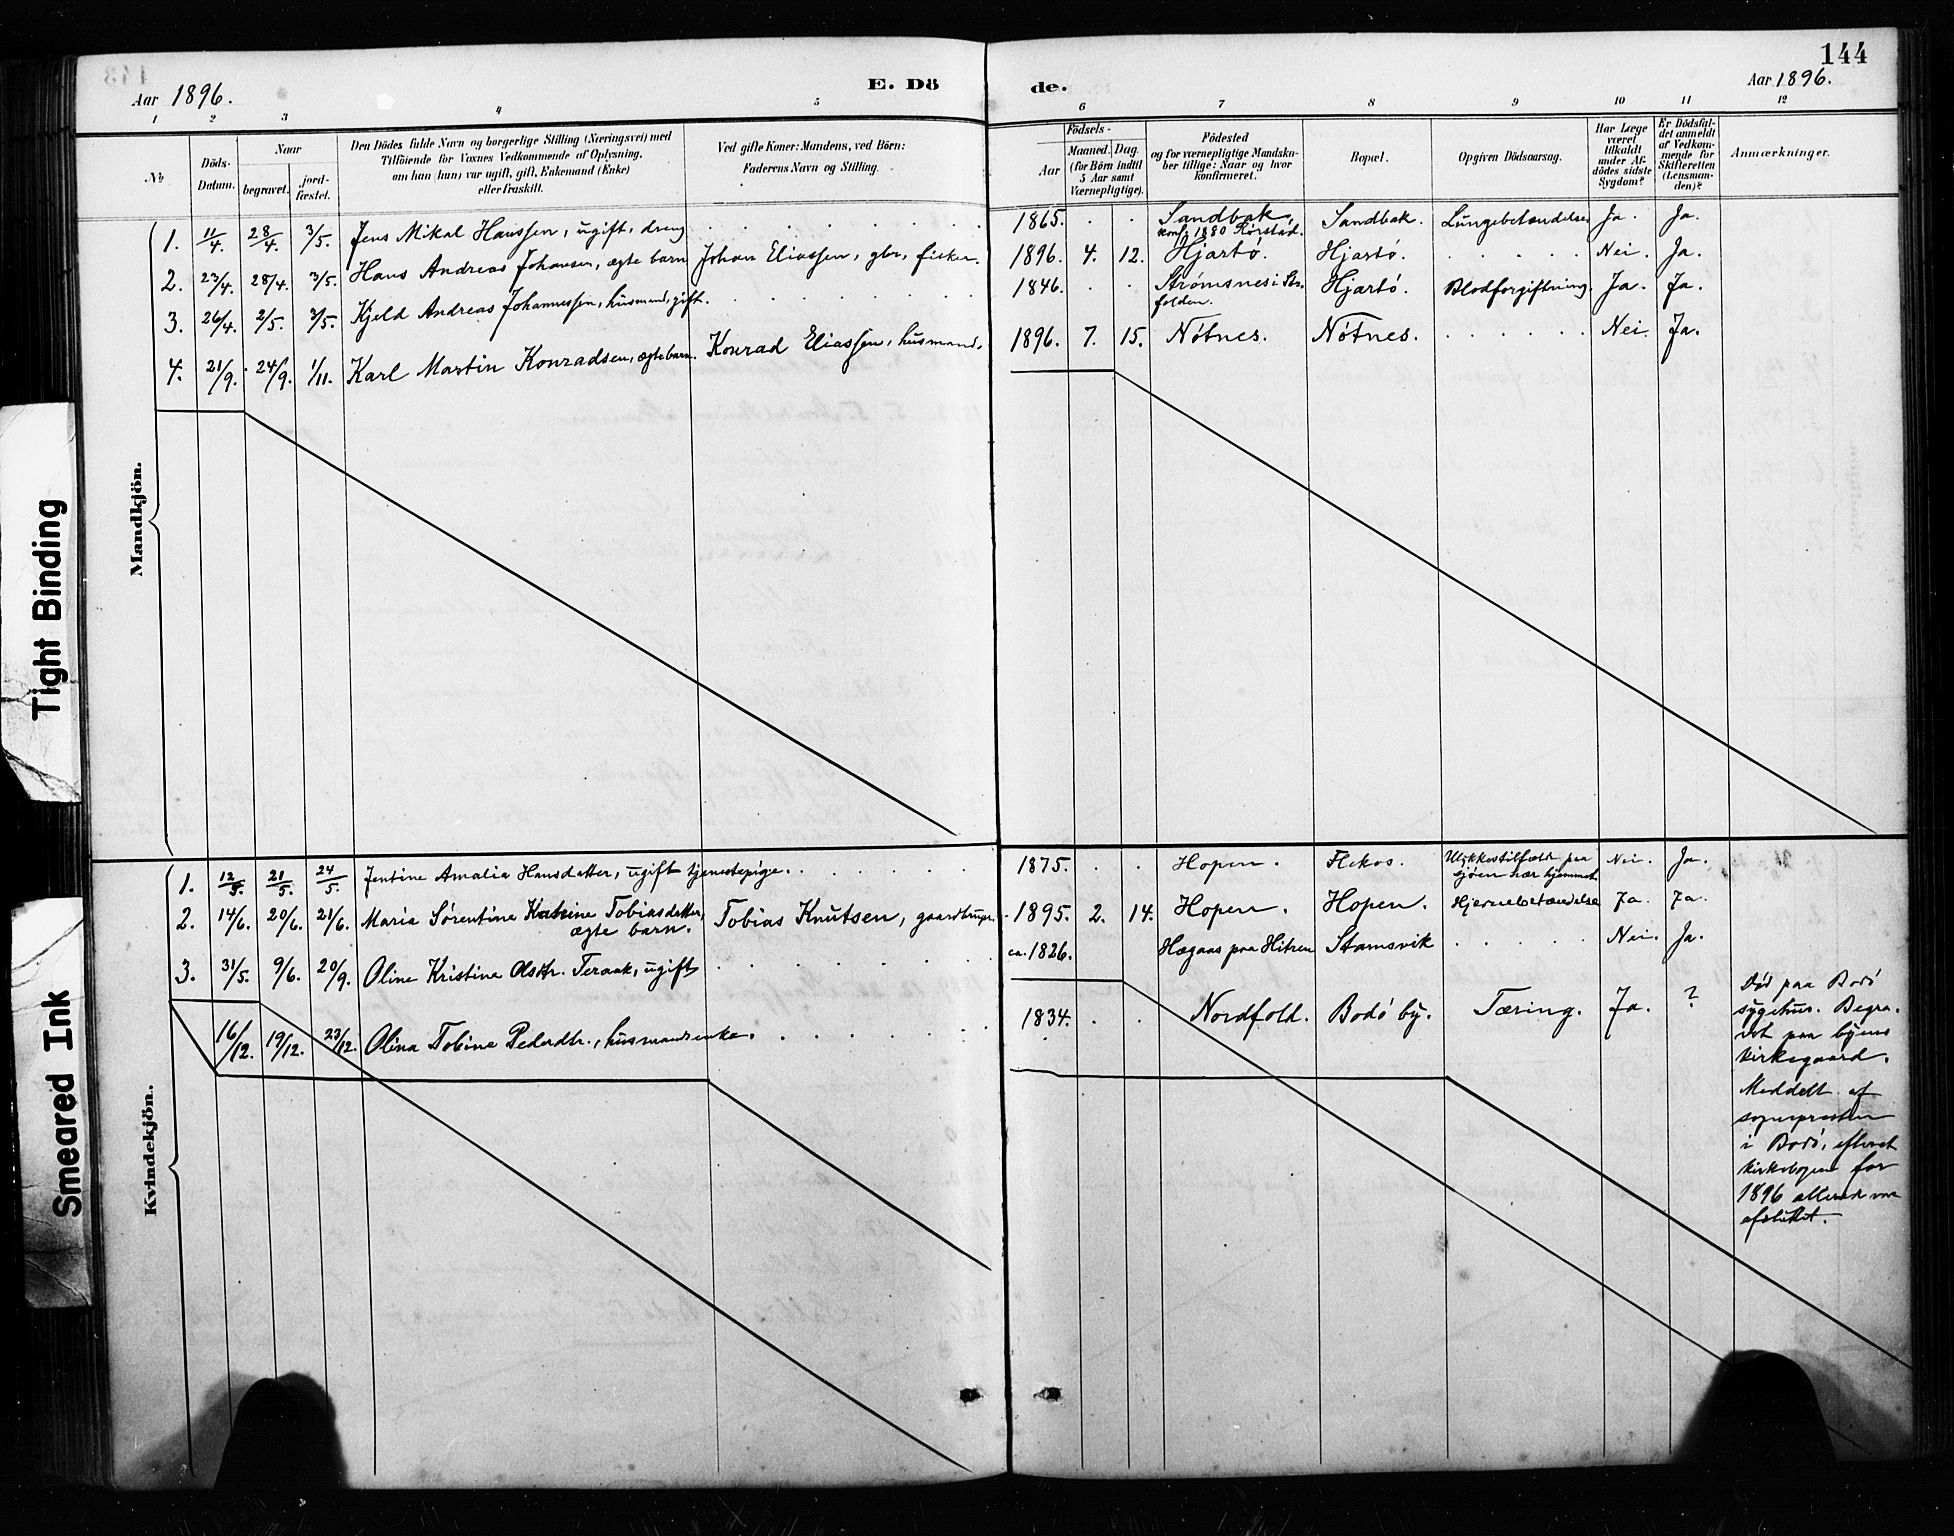 144
Aar 1896.
E. Dö
de.
Aar 1896.
1 2 3 4 5 6 7 8 9 10 11 12
№
Döds-
Datum.
Naar
begravet.
jord-
fæstet.
Den Dödes fulde Navn og borgerlige Stilling (Næringsvei) med
Tilföiende for Voxnes Vedkommende af Oplysning,
om han (hun) var ugift, gift, Enkemand (Enke)
eller fraskilt.
Ved gifte Koner: Mandens, ved Börn:
Faderens Navn og Stilling.
Födsels-
Aar
Maaned. Dag.
(for Börn indtil
5 Aar samt
Værnepligtige).
Födested
og for værnepligtige Mandska-
ber tillige: Naar og hvor
konfirmeret.
Bopæl.
Opgiven Dödsaarsag.
Har Læge
været
tilkaldt
under Af-
dödes sidste
Sygdom?
Er Dödsfal-
det anmeldt
af Vedkom-
mende for
Skifteretten
(Lensman-
den)?
Anmærkninger.
Mandkjön.
1. 11/4. 28/4. 3/5. Jens Mikal Hanssen, ugift, dreng 1865. Sandbak, Sandbak. Lungebetændelse Ja. Ja.
konf. 1880 Rørstad.
2. 23/4. 28/4. 3/5. Hans Andreas Johansen, ægte barn Johan Eliassen, gbr, fisker. 1896. 4. 12. Hjartö. Hjartö. Nei. Ja.
3. 26/4. 2/5. 3/5. Kjeld Andreas Johannessen, husmand, gift. 1846. Strømsnes i Hjartö. Blodforgiftning. Ja. Ja.
folden.
4. 21/9. 24/9. 1/11. Karl Martin Konradsen, ægte barn. Konrad Eliassen, husmand. 1896. 7. 15. Nötnes. Nötnes. Nei. Ja.
Kvindekjön.
1. 12/5. 21/5. 24/5. Jentine Amalia Hansdatter, ugift tjenestepige. 1875. Hopen. Flekos. Ulykkestilfælde paa Nei. Ja.
sjöen nær hjemmet
2. 14/6. 20/6. 21/6. Maria Sørentine Katrine Tobiasdatter, Tobias Knutsen, gaardbruger. 1895. 2. 14. Hopen. Hopen. Hjernebetændelse Ja. Ja.
ægte barn.
3. 31/5. 9/6. 20/9. Oline Kristine Olsdtr. Teraak, ugift ca. 1826. Hægaas paa Hitren Stamsvik Nei. Ja.
16/12. 19/12. 23/12. Olina Tobine Pedersdtr., husmandsenke. 1834. Nordfold. Bodö by. Tæring. Ja. ?
Död paa Bodö
sygehus. Begra-
vet paa byens
kirkegaard.
Meddelt af
sognepresten
i Bodö, efterat
kirkebogen for
1896 allerede var
afsluttet.
Tight Binding
Smeared Ink